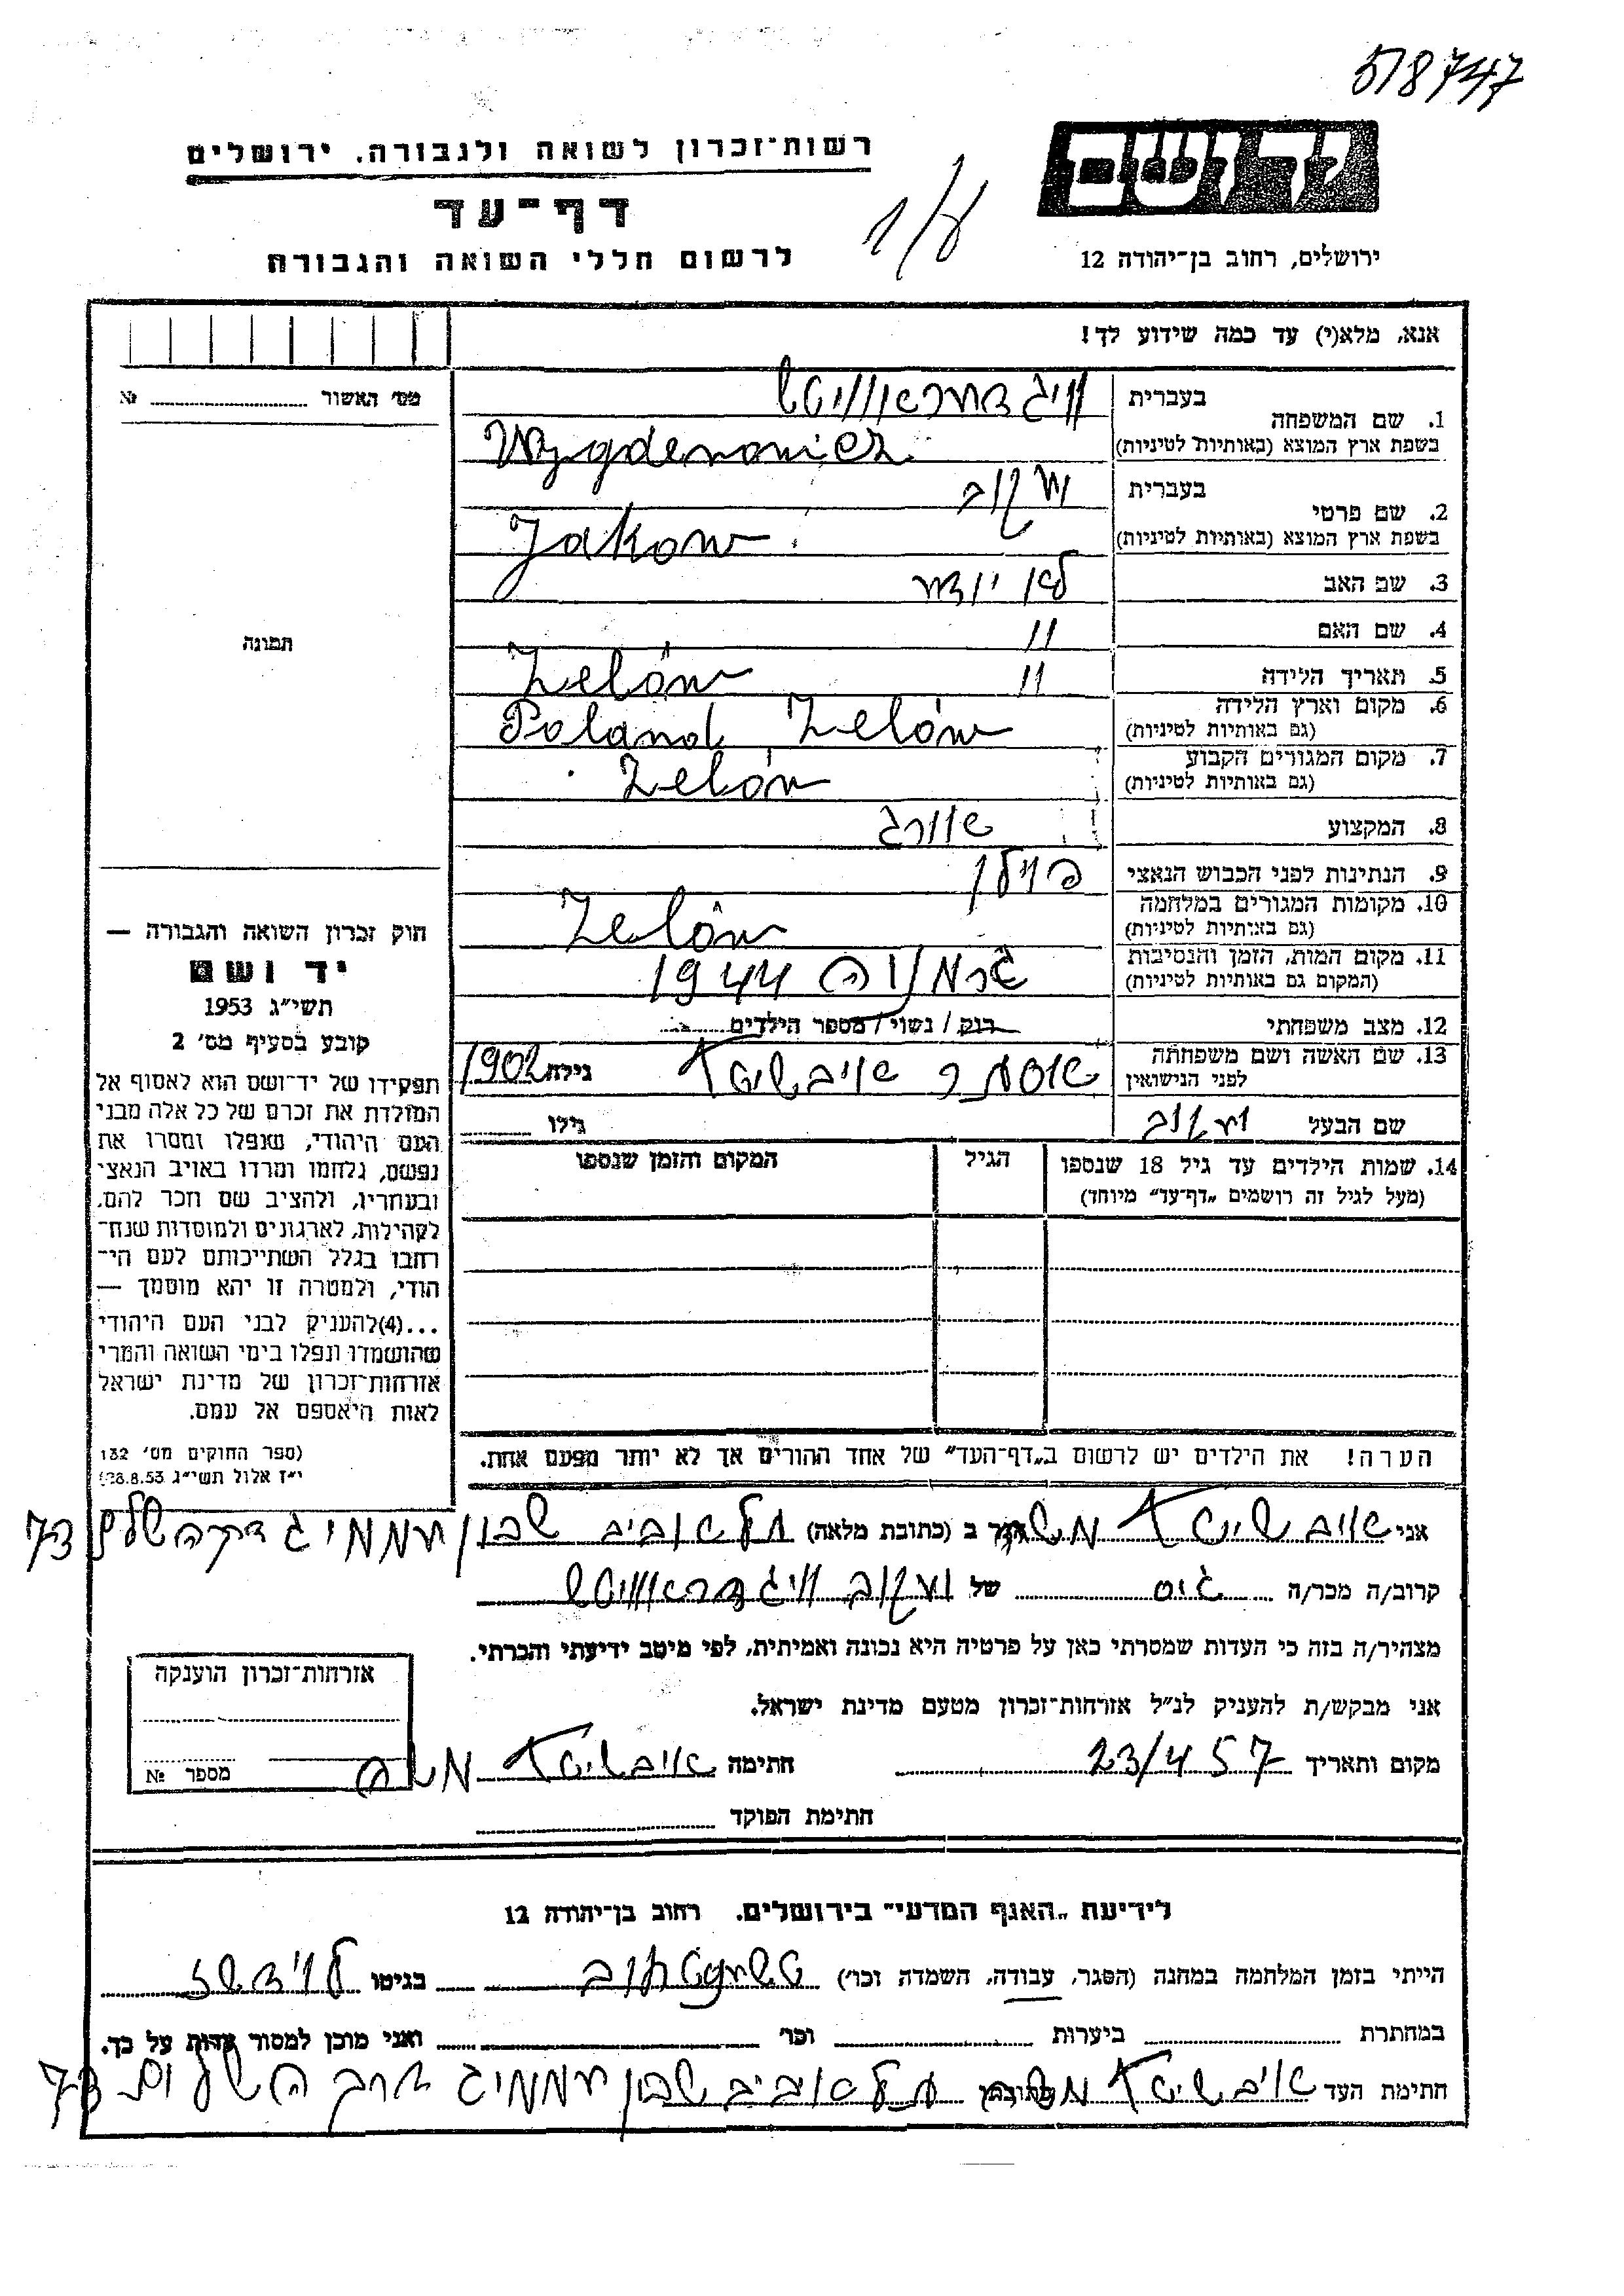 518747
רשות־זכרון לשואה ולגבורה. ירושלים
ידושם
דף־עד
לרשום חללי השואה והגבורה
ירושלים, רחוב בן־יהודה 12
אנא, מלא(י) עד כמה שידוע לך!
מס' האשור № ........
1. שם המשפחה
בעברית
בשפת ארץ המוצא (באותיות לטיניות)
Wygdenowicz
2. שם פרטי
בעברית יעקוב
בשפת ארץ המוצא (באותיות לטיניות)
Jakow
3. שם האב לא יודע
4. שם האם 11
5. תאריך הלידה 11 Zelów
6. מקום וארץ הלידה
(גם באותיות לטיניות) Poland, Zelów
7. מקום המגורים הקבוע
(גם באותיות לטיניות) Zelów
8. המקצוע אורג
9. הנתינות לפני הכבוש הנאצי פוילן
10. מקומות המגורים במלחמה
(גם באותיות לטיניות) Zelów
11. מקום המות, הזמן והנסיבות
(המקום גם באותיות לטיניות) גרמניה 1944
12. מצב משפחתי רוק / נשוי / מספר הילדים
13. שם האשה ושם משפחתה
לפני הנישואין אסתר אייבשיטץ גילה 1902
שם הבעל יעקוב גילו
14. שמות הילדים עד גיל 18 שנספו
(מעל לגיל זה רושמים „דף־עד" מיוחד)
הגיל
המקום והזמן שנספו
הערה! את הילדים יש לרשום ב„דף־העד" של אחד ההורים אך לא יותר מפעם אחת.
תמונה
חוק זכרון השואה והגבורה —
יד ושם
תשי״ג 1953
קובע בסעיף מס' 2
תפקידו של יד־ושם הוא לאסוף אל
המולדת את זכרם של כל אלה מבני
העם היהודי, שנפלו ומסרו את
נפשם, נלחמו ומרדו באויב הנאצי
ובעוזריו, ולהציב שם וזכר להם,
לקהילות, לארגונים ולמוסדות שנח־
רבו בגלל השתייכותם לעם הי־
הודי, ולמטרה זו יהא מוסמך —
...(4)להעניק לבני העם היהודי
שהושמדו ונפלו בימי השואה והמרי
אזרחות־זכרון של מדינת ישראל
לאות היאספם אל עמם.
(ספר החוקים מס' 132
י״ז אלול תשי״ג 28.8.53)
אני אייבשיטץ משה הגר ב (כתובת מלאה) תל אביב שכון עממי ג 73
קרוב/ה מכר/ה גיס של יעקוב
מצהיר/ה בזה כי העדות שמסרתי כאן על פרטיה היא נכונה ואמיתית, לפי מיטב ידיעתי והכרתי.
אני מבקש/ת להעניק לנ״ל אזרחות־זכרון מטעם מדינת ישראל.
מקום ותאריך 23/4 57 חתימה אייבשיטץ משה
חתימת הפוקד
אזרחות־זכרון הוענקה
מספר №
לידיעת „האגף המדעי" בירושלים. רחוב בן־יהודה 12
הייתי בזמן המלחמה במחנה (הסגר, עבודה, השמדה וכו') טשענסטחוב בגיטו לוידשז
במחתרת ביערות וכו' ואני מוכן למסור עדות על כך.
חתימת העד אייבשיטץ משה כתובתו תל אביב שכון עממי ג דרך השלום 73